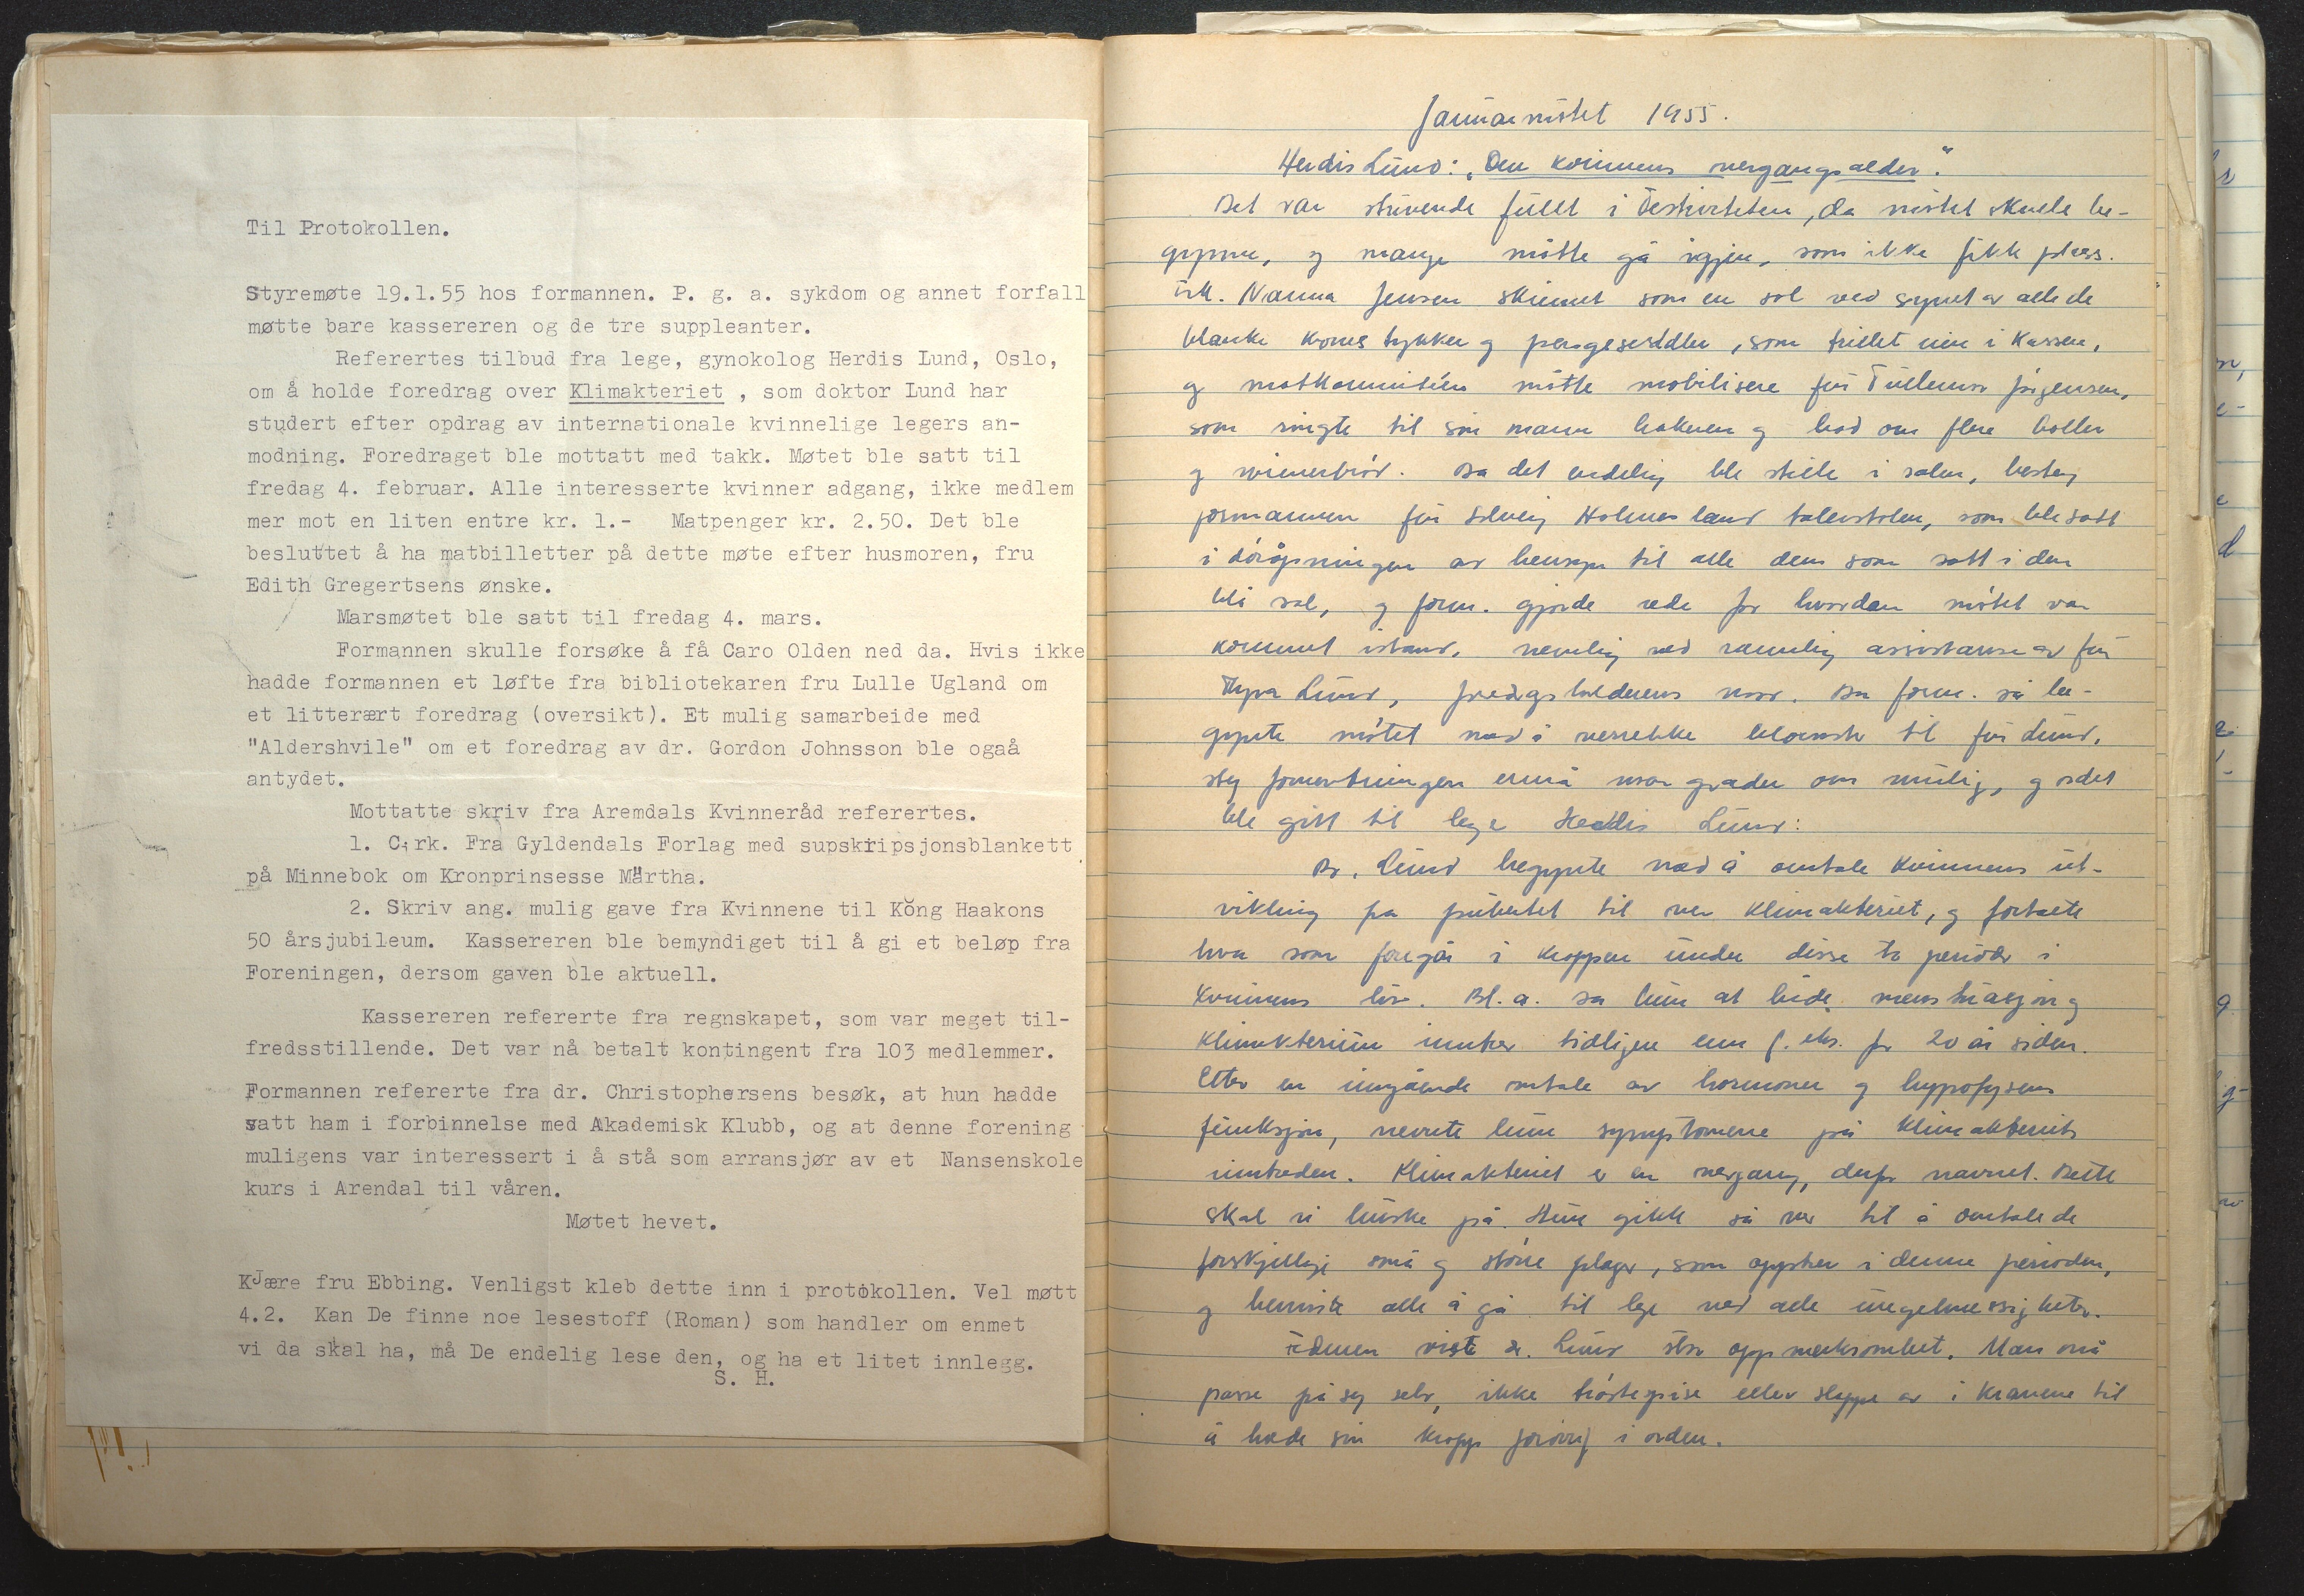 Til Protokollen.
Styremøte 19.1.55 hos formannen. P. g. a. sykdom og annet forfall
møtte bare kassereren og de tre suppleanter.
Referertes tilbud fra lege, gynokolog Herdis Lund, Oslo,
om å holde foredrag over Klimakteriet , som doktor Lund har
studert efter opdrag av internationale kvinnelige legers an-
modning. Foredraget ble mottatt med takk. Møtet ble satt til
fredag 4. februar. Alle interesserte kvinner adgang, ikke medlem
mer mot en liten entre kr. 1.- Matpenger kr. 2.50. Det ble
besluttet å ha matbilletter på dette møte efter husmoren, fru
Edith Gregertsens ønske.
Marsmøtet ble satt til fredag 4. mars.
Formannen skulle forsøke å få Caro Olden ned da. Hvis ikke
hadde formannen et løfte fra bibliotekaren fru Lulle Ugland om
et litterært foredrag (oversikt). Et mulig samarbeide med
"Aldershvile" om et foredrag av dr. Gordon Johnsson ble ogaå
antydet.
Mottatte skriv fra Aremdals Kvinneråd referertes.
1. Cirk. Fra Gyldendals Forlag med supskripsjonsblankett
på Minnebok om Kronprinsesse Märtha.
2. Skriv ang. mulig gave fra Kvinnene til Kong Haakons
50 årsjubileum. Kassereren ble bemyndiget til å gi et beløp fra
Foreningen, dersom gaven ble aktuell.
Kassereren refererte fra regnskapet, som var meget til-
fredsstillende. Det var nå betalt kontingent fra 103 medlemmer.
Formannen refererte fra dr. Christophersens besøk, at hun hadde
satt ham i forbinnelse med Akademisk Klubb, og at denne forening
muligens var interessert i å stå som arransjør av et Nansenskole
kurs i Arendal til våren.
Møtet hevet.
Kjære fru Ebbing. Venligst kleb dette inn i protokollen. Vel møtt
4.2. Kan De finne noe lesestoff (Roman) som handler om enmet
vi da skal ha, må De endelig lese den, og ha et litet innlegg.
S. H.
Januarmötet 1955.
Herdis Lund: "Den kvinnens overgangsalder".
Det var stuvende fullt i Festiviteten, da mötet skulle be-
gynne, og mange måtte gå igjen, som ikke fikk plass.
Frk. Nanna Jensen skinnet som en sol ved synet av alle de
blanke kronestykker og pengesedler, som trillet inn i kassen,
og matkommitéen måtte mobilisere fru Jörgensen,
som ringte til sin mann bakeren og bad om flere boller
og wienerbröd. Da det endelig ble stille i salen, besteg
formannen fru Solveig Holmesland talerstolen, som ble satt
i döråpningen av hensyn til alle dem som satt i den
blå sal, og form. gjorde rede for hvordan mötet var
kommet istand, nemlig ved velvillig assistanse av fru
Thyra Lund, foredragsholderens mor. Da form. så be-
gynte mötet med å overrekke blomster til fru Lund,
steg forventningen ennå noen grader om mulig, og ordet
ble gitt til lege Herdis Lund:
Dr. Lund begynte med å omtale kvinnens ut-
vikling fra pubertet til over klimakteriet, og fortalte
hva som foregår i kroppen under disse to perioder i
kvinnens liv. Bl. a. sa hun at både menstruasjon og
klimakterium inntrer tidligere enn f. eks. for 20 år siden.
Etter en inngående omtale av hormoner og hypofysens
funksjon, nevnte hun symptomene på klimakteriets
inntreden. Klimakteriet er en overgang, derfor navnet. Dette
skal vi huske på. Hun gikk så over til å omtale de
forskjellige små og större plager, som oppstår i denne perioden,
og henviste alle å gå til lege ved alle uregelmessigheter.
Fedmen viste dr. Lund stor oppmerksomhet. Man må
passe på seg selv, ikke tröstespise eller slappe av i kravene til
å holde sin kropp forövrig i orden.